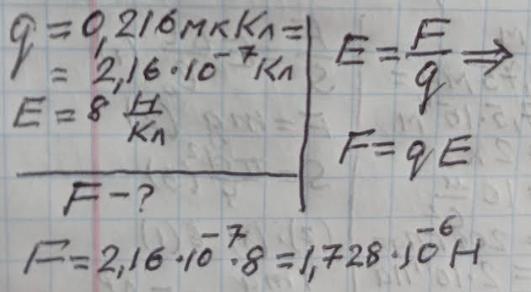 q = 0,216 мкКл =
= 2,16·10⁻⁷ Кл
E = 8 Н/Кл
F - ?
E = F/q ⇒
F = qE
F = 2,16·10⁻⁷·8 = 1,728·10⁻⁶ Н